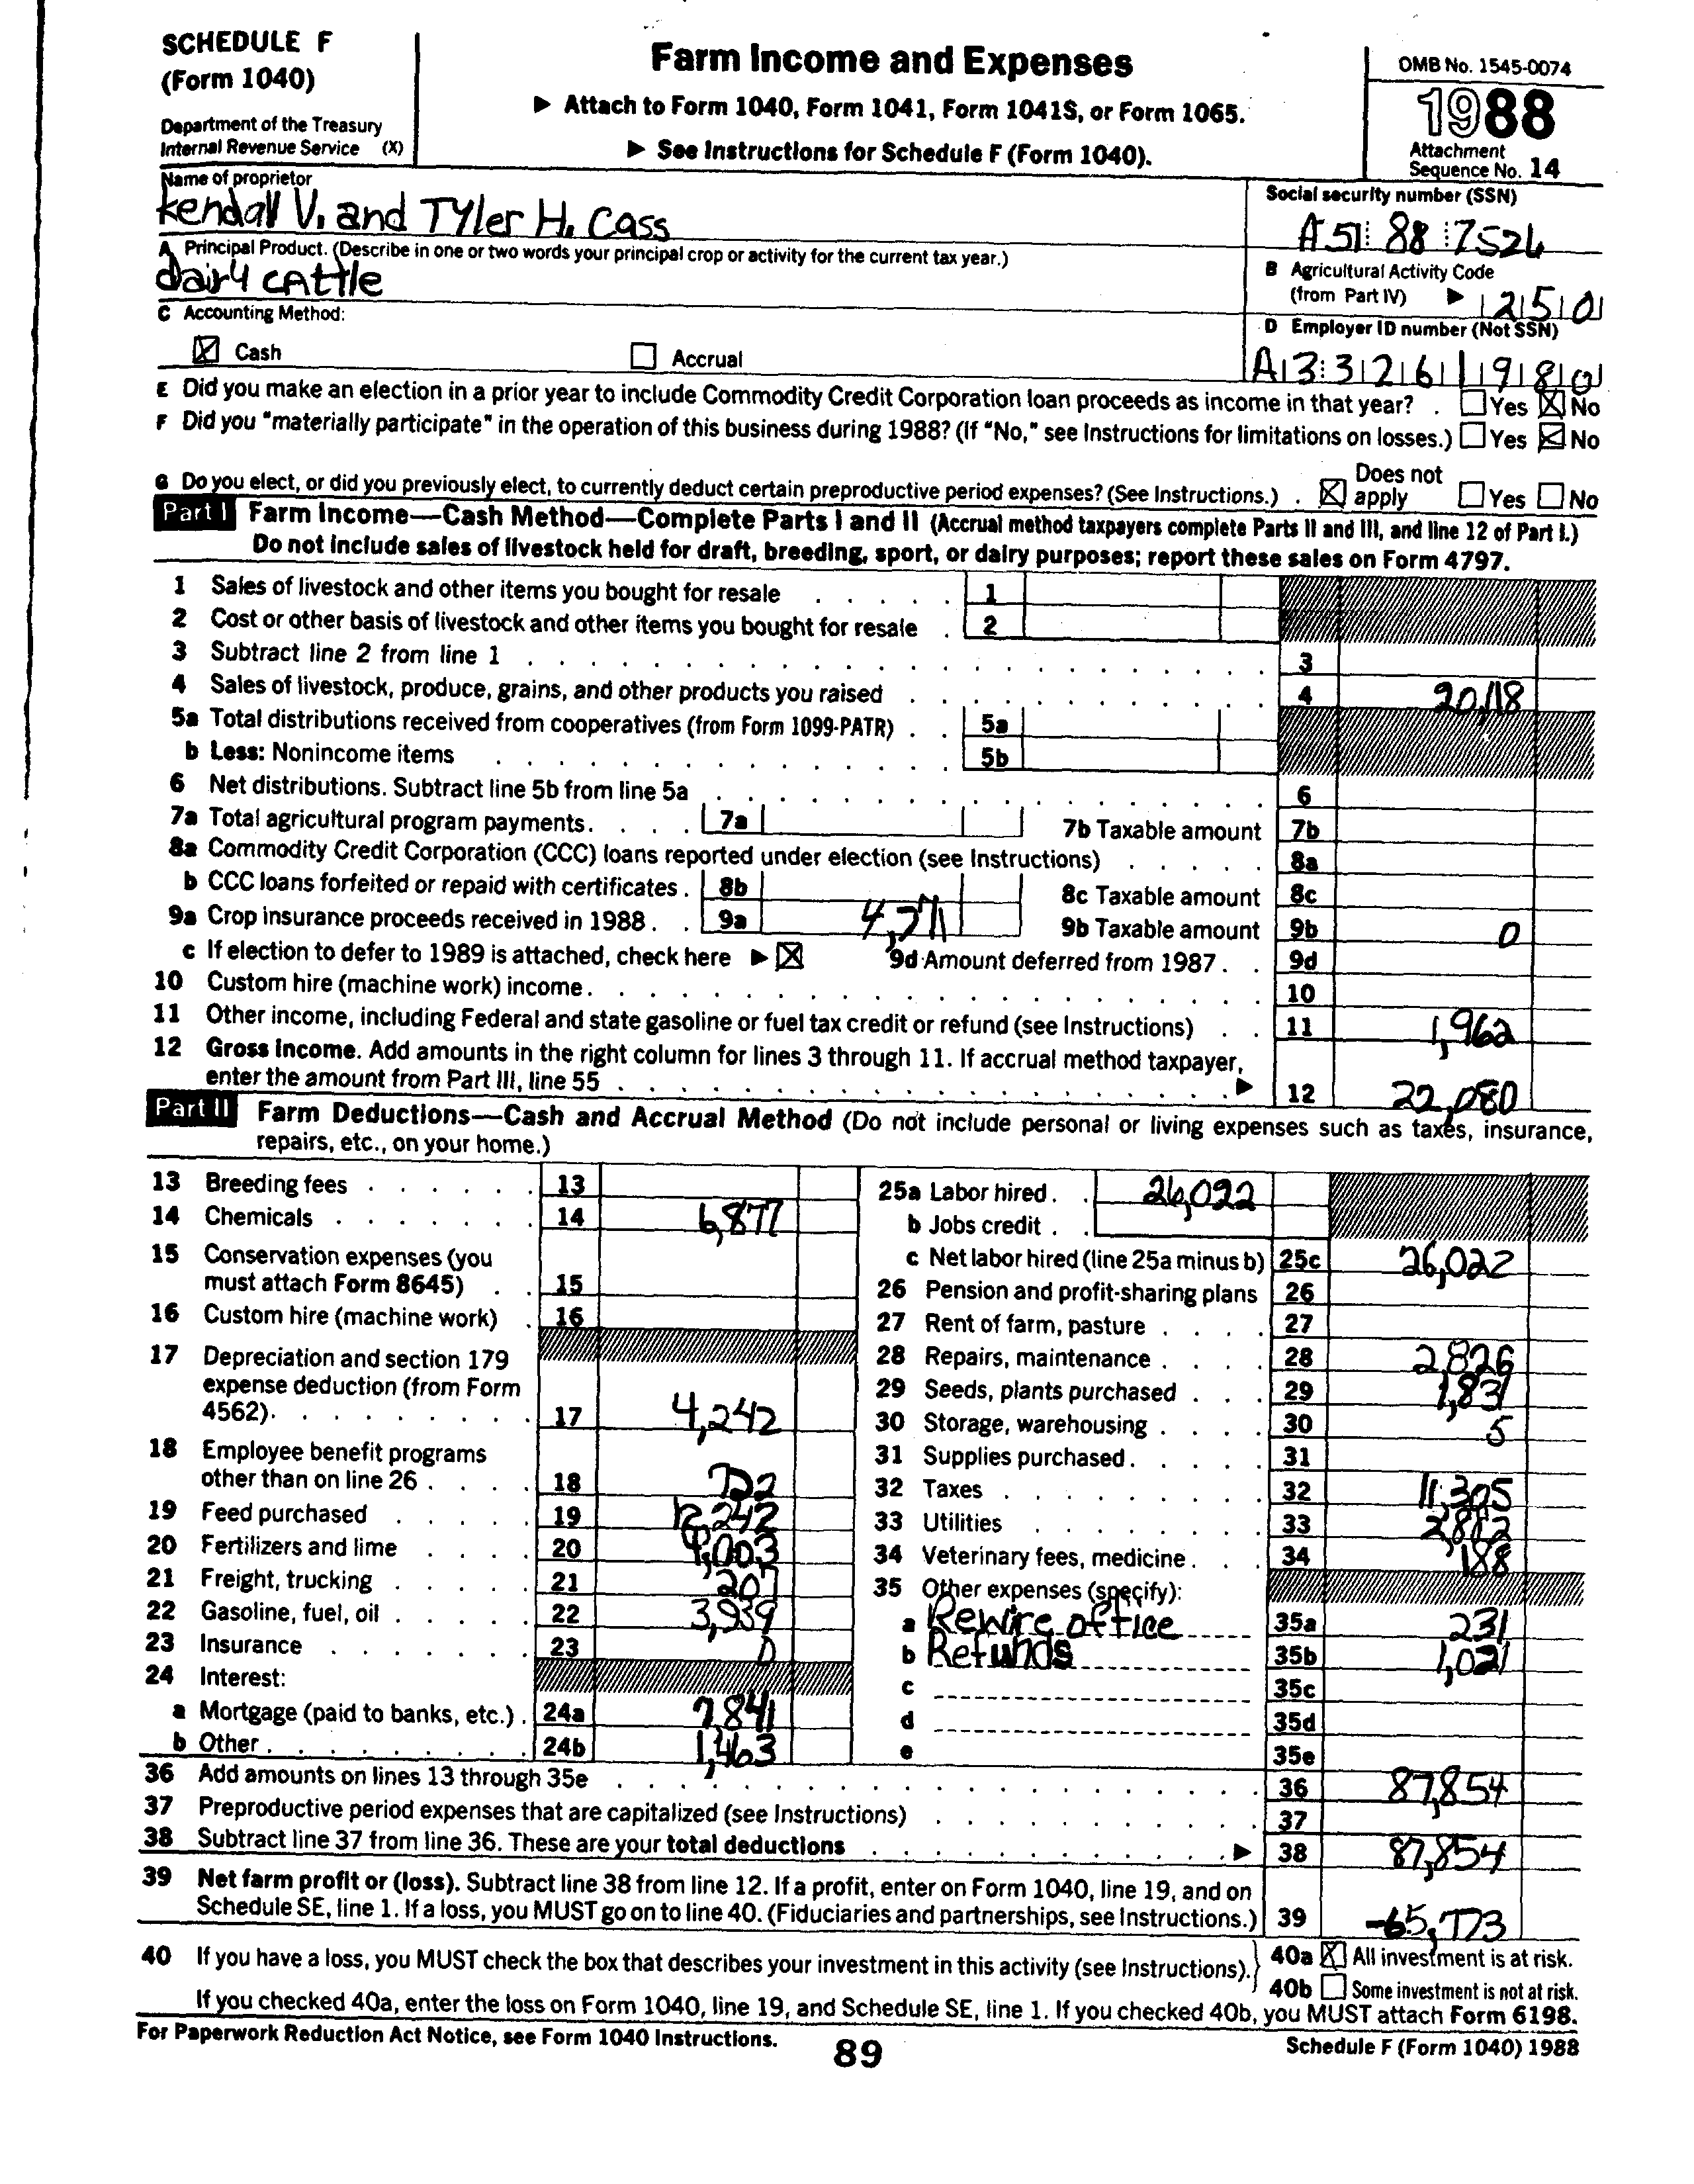 SCHEDULE F
(Form 1040)
Department of the Treasury
Internal Revenue Service (X)
Farm Income and Expenses
▶ Attach to Form 1040, Form 1041, Form 1041S, or Form 1065.
▶ See Instructions for Schedule F (Form 1040).
OMB No. 1545-0074
1988
Attachment
Sequence No. 14
Name of proprietor
Kendall V. and Tyler H. Cass
Social security number (SSN)
A51 88 7526
A Principal Product. (Describe in one or two words your principal crop or activity for the current tax year.)
dairy cattle
B Agricultural Activity Code
(from Part IV) ▶ 2 5 0
C Accounting Method:
☒ Cash ☐ Accrual
D Employer ID number (Not SSN)
A 3 3 2 6 1 9 8 0
E Did you make an election in a prior year to include Commodity Credit Corporation loan proceeds as income in that year? . ☐ Yes ☒ No
F Did you "materially participate" in the operation of this business during 1988? (If "No," see Instructions for limitations on losses.) ☐ Yes ☒ No
G Do you elect, or did you previously elect, to currently deduct certain preproductive period expenses? (See Instructions.) . ☒ Does not apply ☐ Yes ☐ No
Part I Farm Income—Cash Method—Complete Parts I and II (Accrual method taxpayers complete Parts II and III, and line 12 of Part I.)
Do not include sales of livestock held for draft, breeding, sport, or dairy purposes; report these sales on Form 4797.
1 Sales of livestock and other items you bought for resale 1
2 Cost or other basis of livestock and other items you bought for resale 2
3 Subtract line 2 from line 1 3
4 Sales of livestock, produce, grains, and other products you raised 4 20,118
5a Total distributions received from cooperatives (from Form 1099-PATR) 5a
b Less: Nonincome items 5b
6 Net distributions. Subtract line 5b from line 5a 6
7a Total agricultural program payments. 7a 7b Taxable amount 7b
8a Commodity Credit Corporation (CCC) loans reported under election (see Instructions) 8a
b CCC loans forfeited or repaid with certificates. 8b 8c Taxable amount 8c
9a Crop insurance proceeds received in 1988. 9a 4,771 9b Taxable amount 9b 0
c If election to defer to 1989 is attached, check here ▶ ☒ 9d Amount deferred from 1987. 9d
10 Custom hire (machine work) income. 10
11 Other income, including Federal and state gasoline or fuel tax credit or refund (see Instructions) 11 1,962
12 Gross income. Add amounts in the right column for lines 3 through 11. If accrual method taxpayer,
enter the amount from Part III, line 55 ▶ 12 22,080
Part II Farm Deductions—Cash and Accrual Method (Do not include personal or living expenses such as taxes, insurance,
repairs, etc., on your home.)
13 Breeding fees 13
14 Chemicals 14 6,877
15 Conservation expenses (you
must attach Form 8645) 15
16 Custom hire (machine work) 16
17 Depreciation and section 179
expense deduction (from Form
4562). 17 4,242
18 Employee benefit programs
other than on line 26 . 18 722
19 Feed purchased 19 12,242
20 Fertilizers and lime 20 4,003
21 Freight, trucking 21 207
22 Gasoline, fuel, oil 22 3,939
23 Insurance 23 0
24 Interest:
a Mortgage (paid to banks, etc.) . 24a 7,841
b Other . 24b 1,463
25a Labor hired. 26,022
b Jobs credit
c Net labor hired (line 25a minus b) 25c 26,022
26 Pension and profit-sharing plans 26
27 Rent of farm, pasture 27
28 Repairs, maintenance 28 2,826
29 Seeds, plants purchased 29 1,831
30 Storage, warehousing 30 5
31 Supplies purchased. 31
32 Taxes 32 11,305
33 Utilities 33 2,882
34 Veterinary fees, medicine. 34 188
35 Other expenses (specify):
a Rewire office 35a 231
b Refunds 35b 1,021
c 35c
d 35d
e 35e
36 Add amounts on lines 13 through 35e 36 87,854
37 Preproductive period expenses that are capitalized (see Instructions) 37
38 Subtract line 37 from line 36. These are your total deductions ▶ 38 87,854
39 Net farm profit or (loss). Subtract line 38 from line 12. If a profit, enter on Form 1040, line 19, and on
Schedule SE, line 1. If a loss, you MUST go on to line 40. (Fiduciaries and partnerships, see Instructions.) 39 -65,773
40 If you have a loss, you MUST check the box that describes your investment in this activity (see Instructions). 40a ☒ All investment is at risk.
40b ☐ Some investment is not at risk.
If you checked 40a, enter the loss on Form 1040, line 19, and Schedule SE, line 1. If you checked 40b, you MUST attach Form 6198.
For Paperwork Reduction Act Notice, see Form 1040 Instructions.
89
Schedule F (Form 1040) 1988